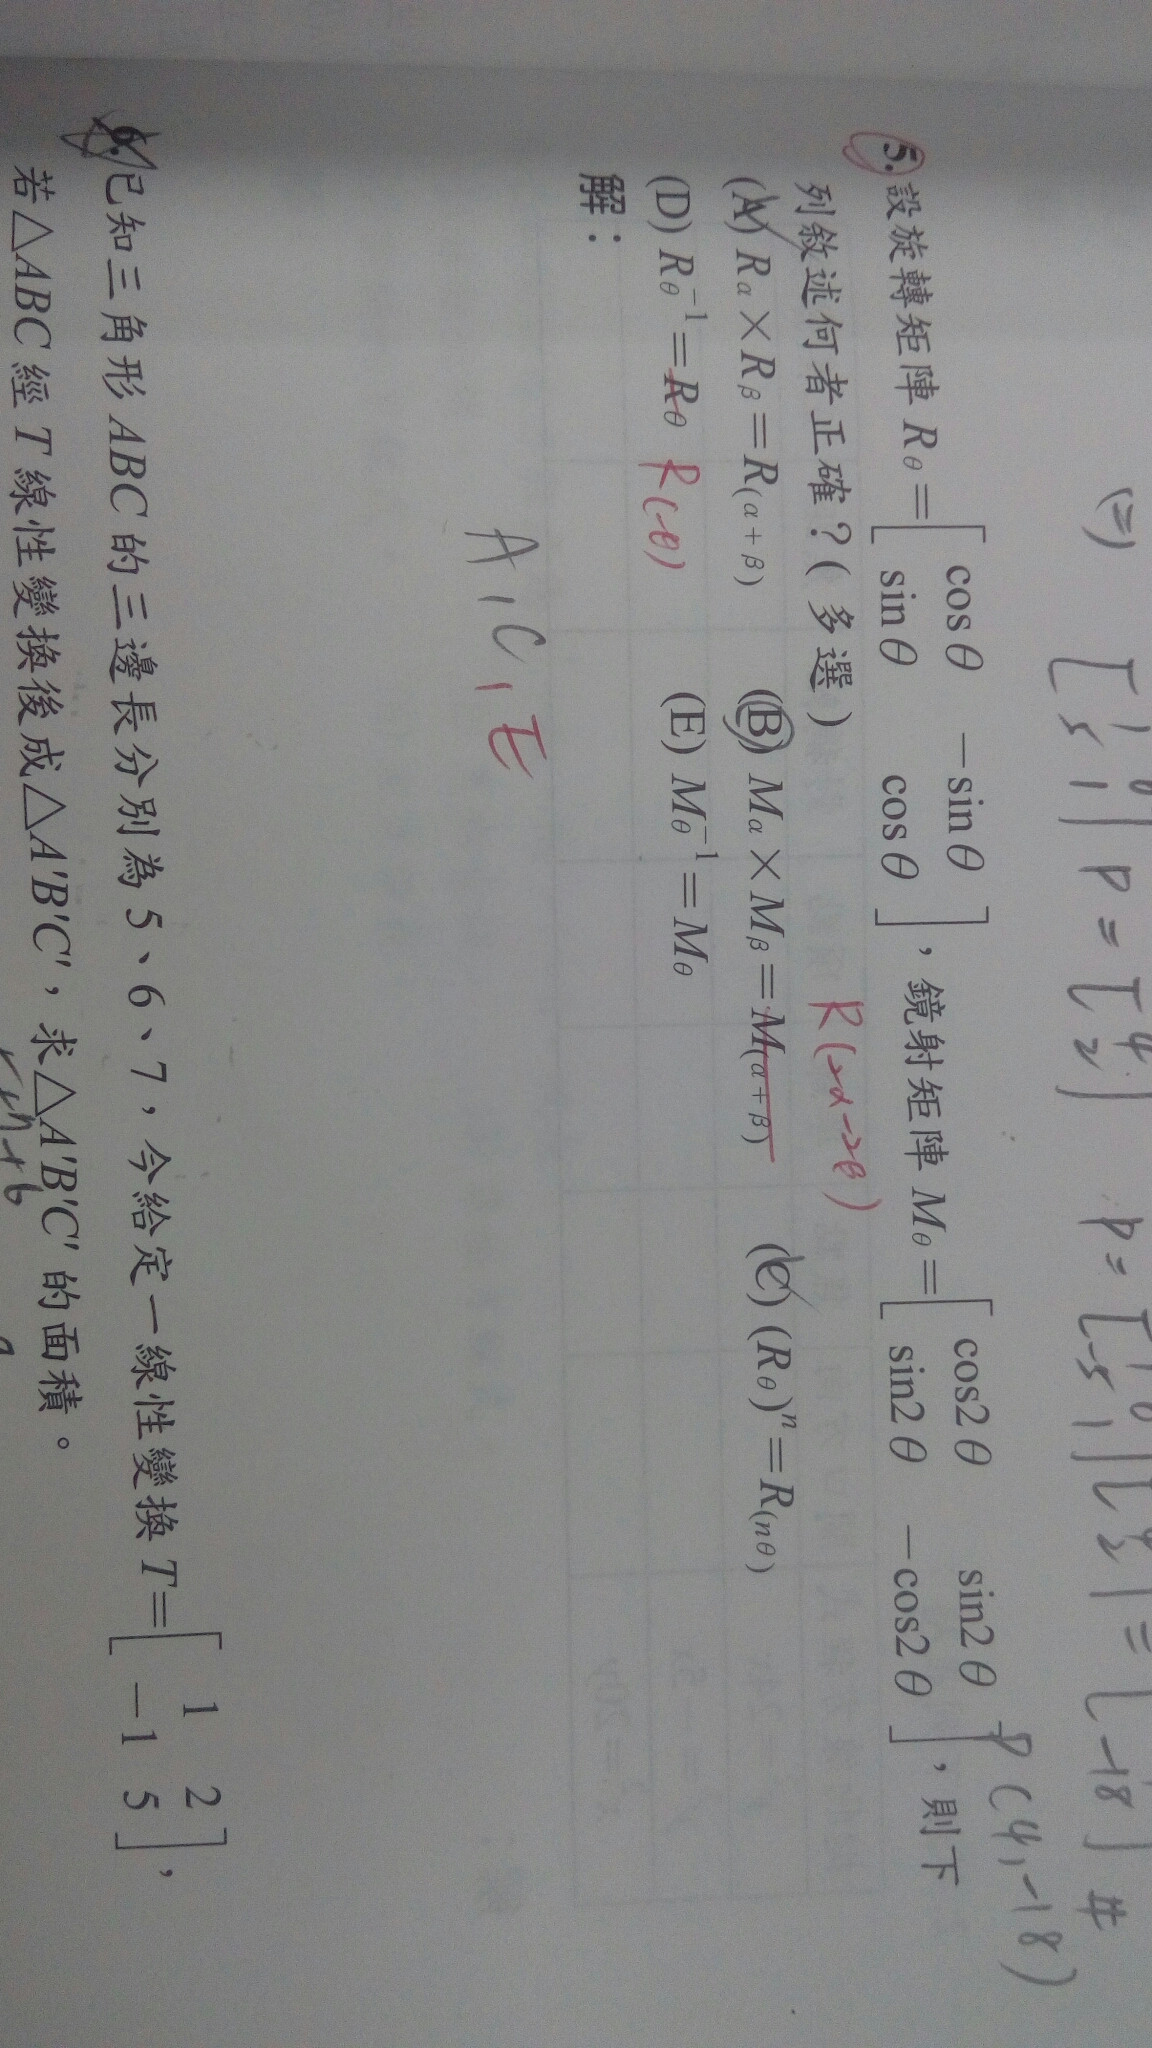 (二) [1 0
5 1] P = [4
2] P = [1 0
-5 1] [4
2] = [
-18] #
P(4,-18)
5. 設旋轉矩陣 Rθ = [cosθ -sinθ
sinθ cosθ],鏡射矩陣 Mθ = [cos2θ sin2θ
sin2θ -cos2θ],則下
列敘述何者正確?(多選)
R(2α-2β)
(A) Rα × Rβ = R(α+β) (B) Mα × Mβ = M(α+β) (C) (Rθ)ⁿ = R(nθ)
(D) Rθ⁻¹ = Rθ R(-θ) (E) Mθ⁻¹ = Mθ
解:
A, C, E
6. 已知三角形 ABC 的三邊長分別為 5、6、7,今給定一線性變換 T = [1 2
-1 5],
若△ABC 經 T 線性變換後成△A'B'C',求△A'B'C' 的面積。